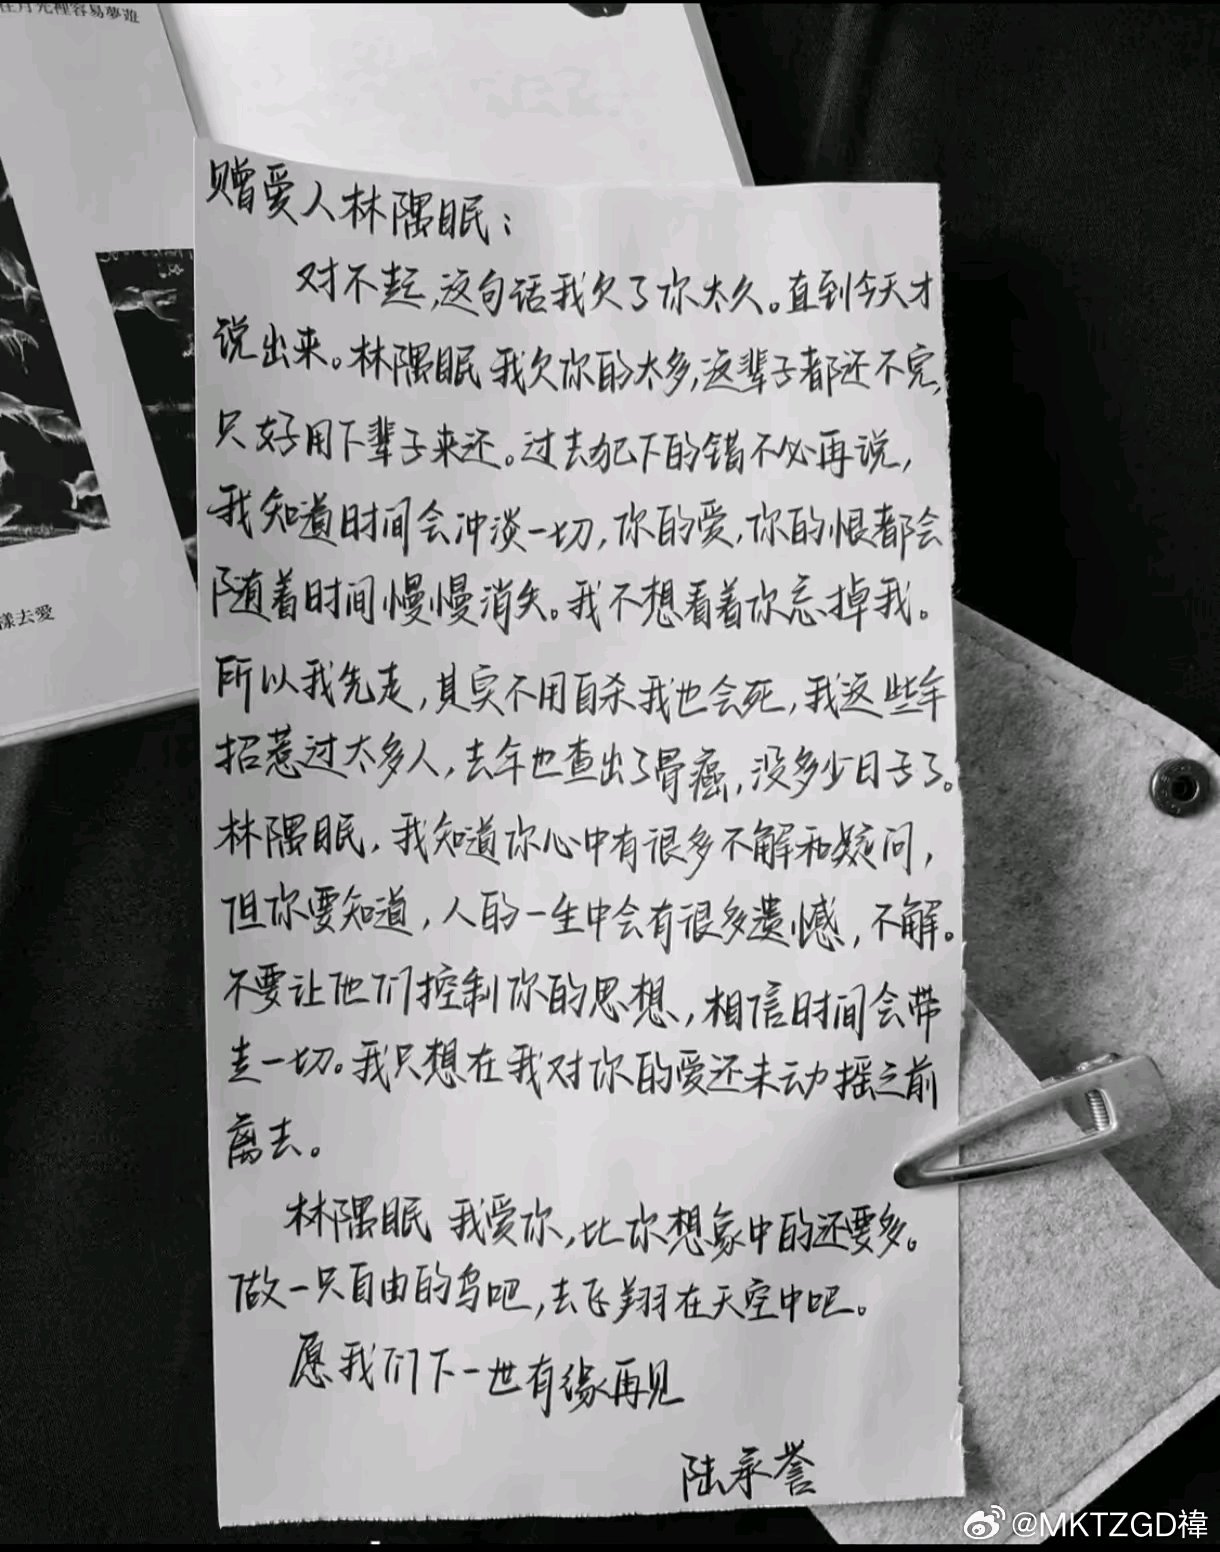 在月光裡容易夢遊
樣去愛
赠爱人林隅眠：
对不起，这句话我欠了你太久。直到今天才
说出来。林隅眠 我欠你的太多，这辈子都还不完，
只好用下辈子来还。过去犯下的错不必再说，
我知道时间会冲淡一切，你的爱，你的恨都会
随着时间慢慢消失。我不想看着你忘掉我。
所以我先走，其实不用自杀我也会死，我这些年
招惹过太多人，去年也查出了骨癌，没多少日子了。
林隅眠，我知道你心中有很多不解和疑问，
但你要知道，人的一生中会有很多遗憾，不解。
不要让他们控制你的思想，相信时间会带
走一切。我只想在我对你的爱还未动摇之前
离去。
林隅眠 我爱你，比你想象中的还要多。
做一只自由的鸟吧，去飞翔在天空中吧。
愿我们下一世有缘再见
陆承誉
@MKTZGD禕